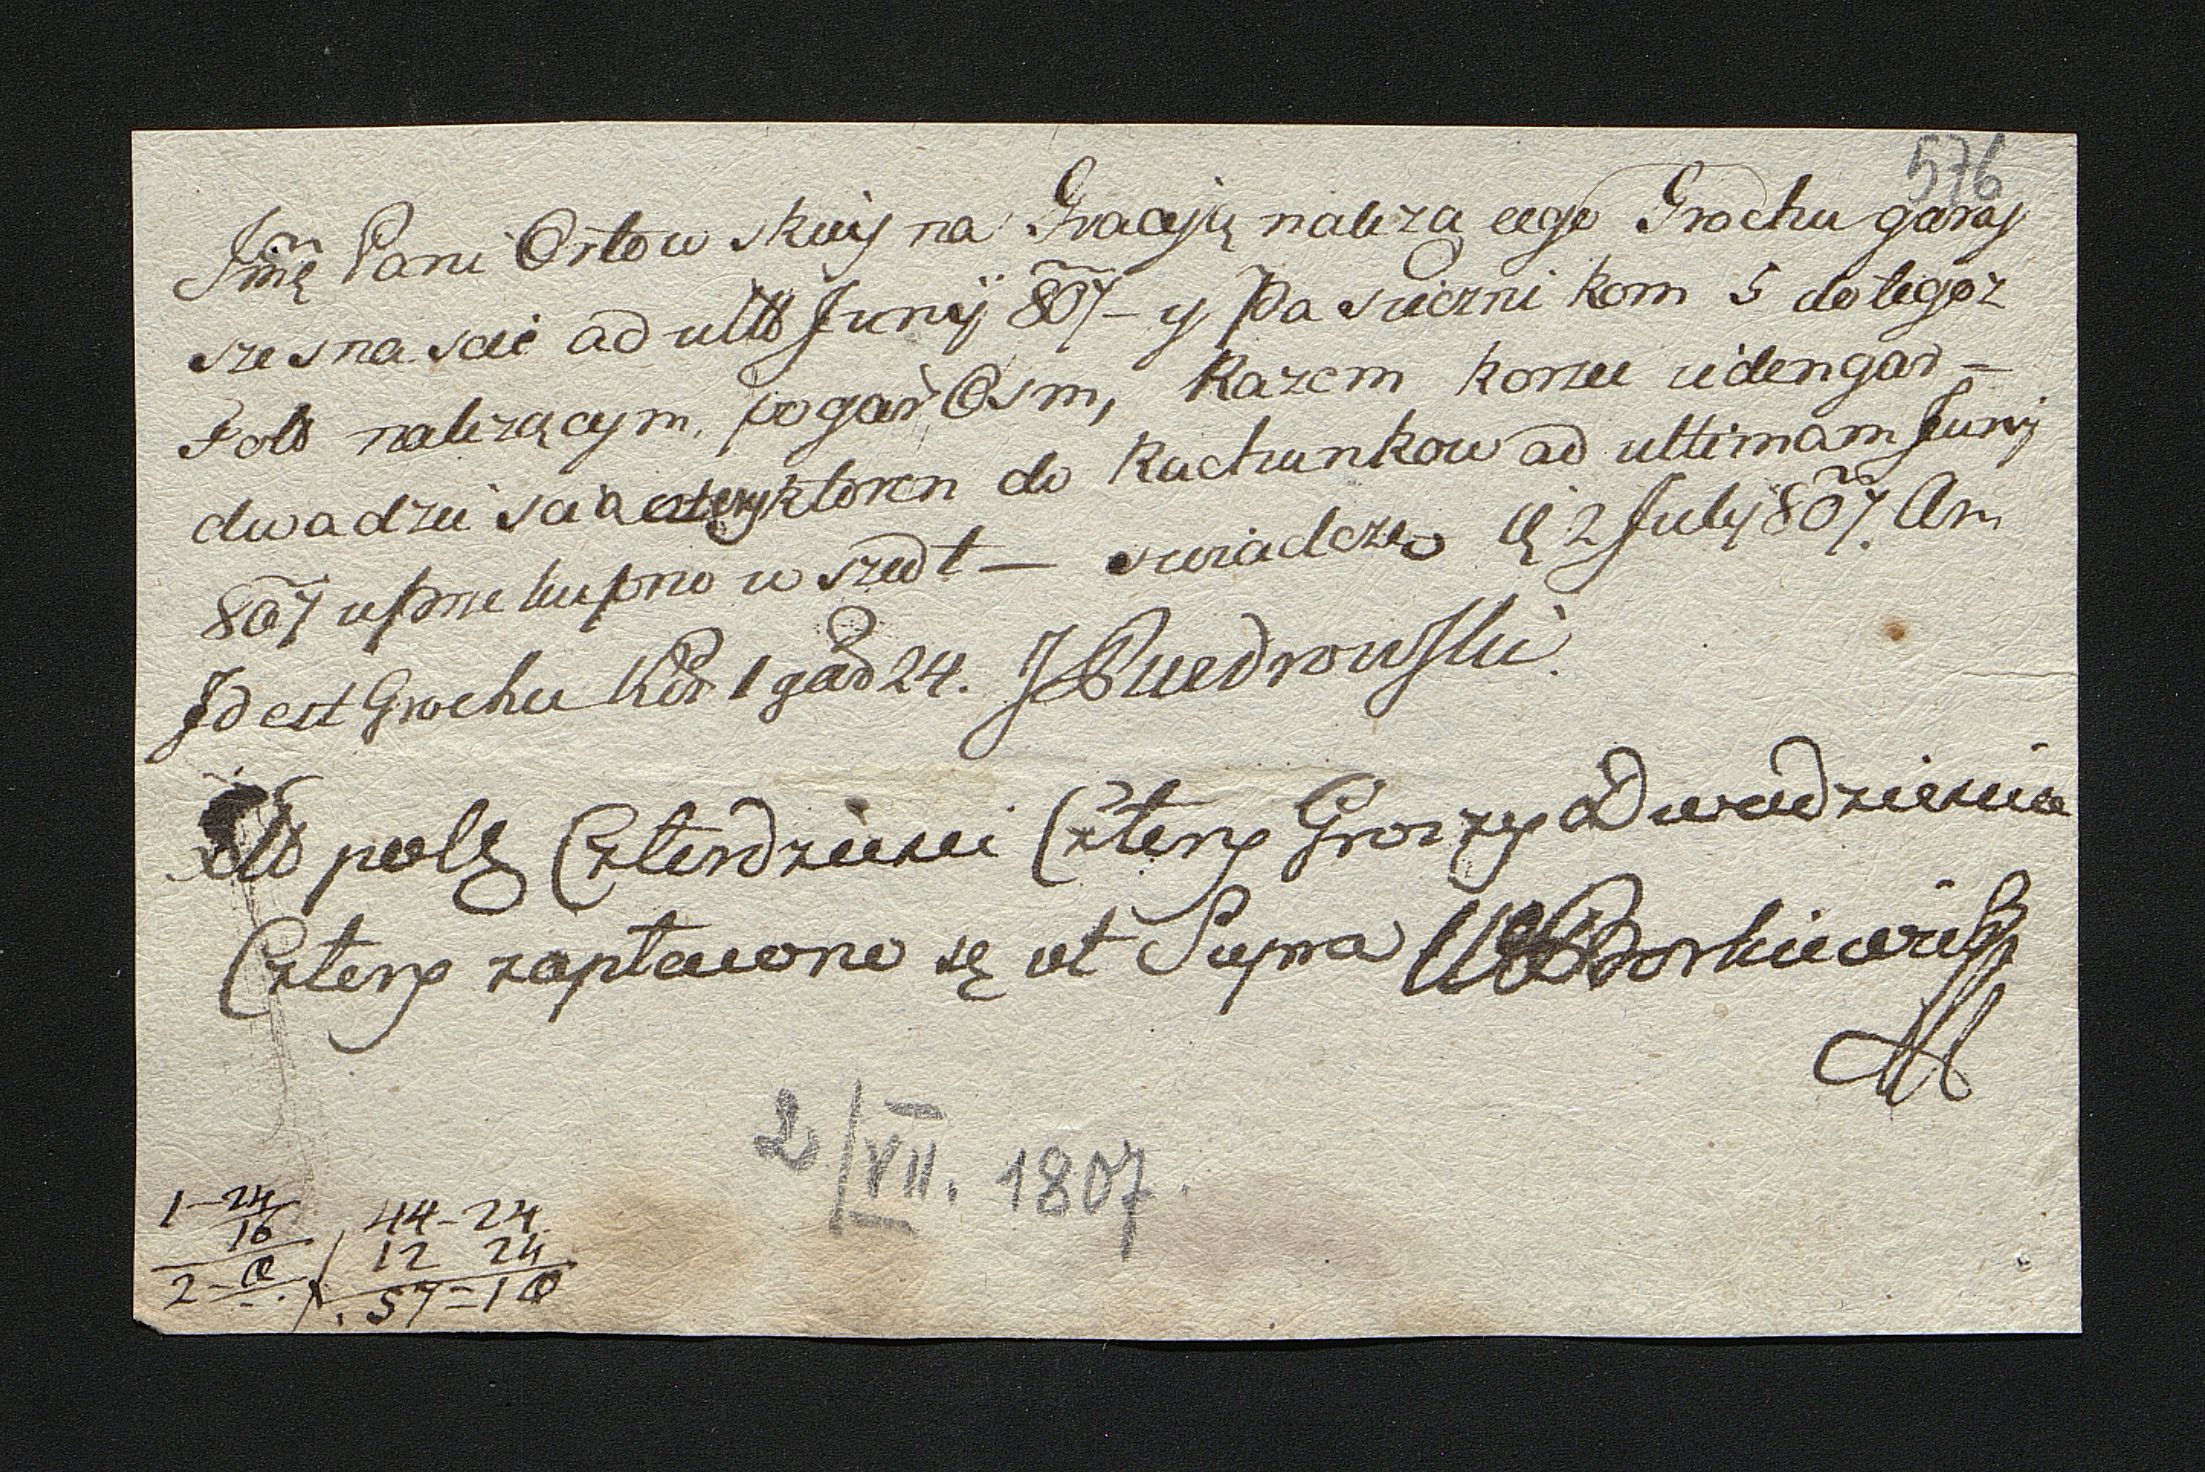 576
Jmę Pani Orłowskiey na Gracyją nalezącego Grochu garcy
szesnascie ad ult Junij 807 – y Pasiecznikom 5 do tegoz
Folw nalezącym, po gar Osm, Razem korzec ieden gar –
dwadziescia cztery ktoren do Rachunkow ad ultimam Junij
807 w przekupno wszedł – swiadczę 2 July 807 An
Jd est Grochu Kor 1 gar 24. J
pols Czterdziesci Cztery Groszy Dwadziescia
Cztery zapłacono są ut Supra Borkiewicz
2/VII. 1807.
1–24 44–24
16 12 24
2–0 57=10